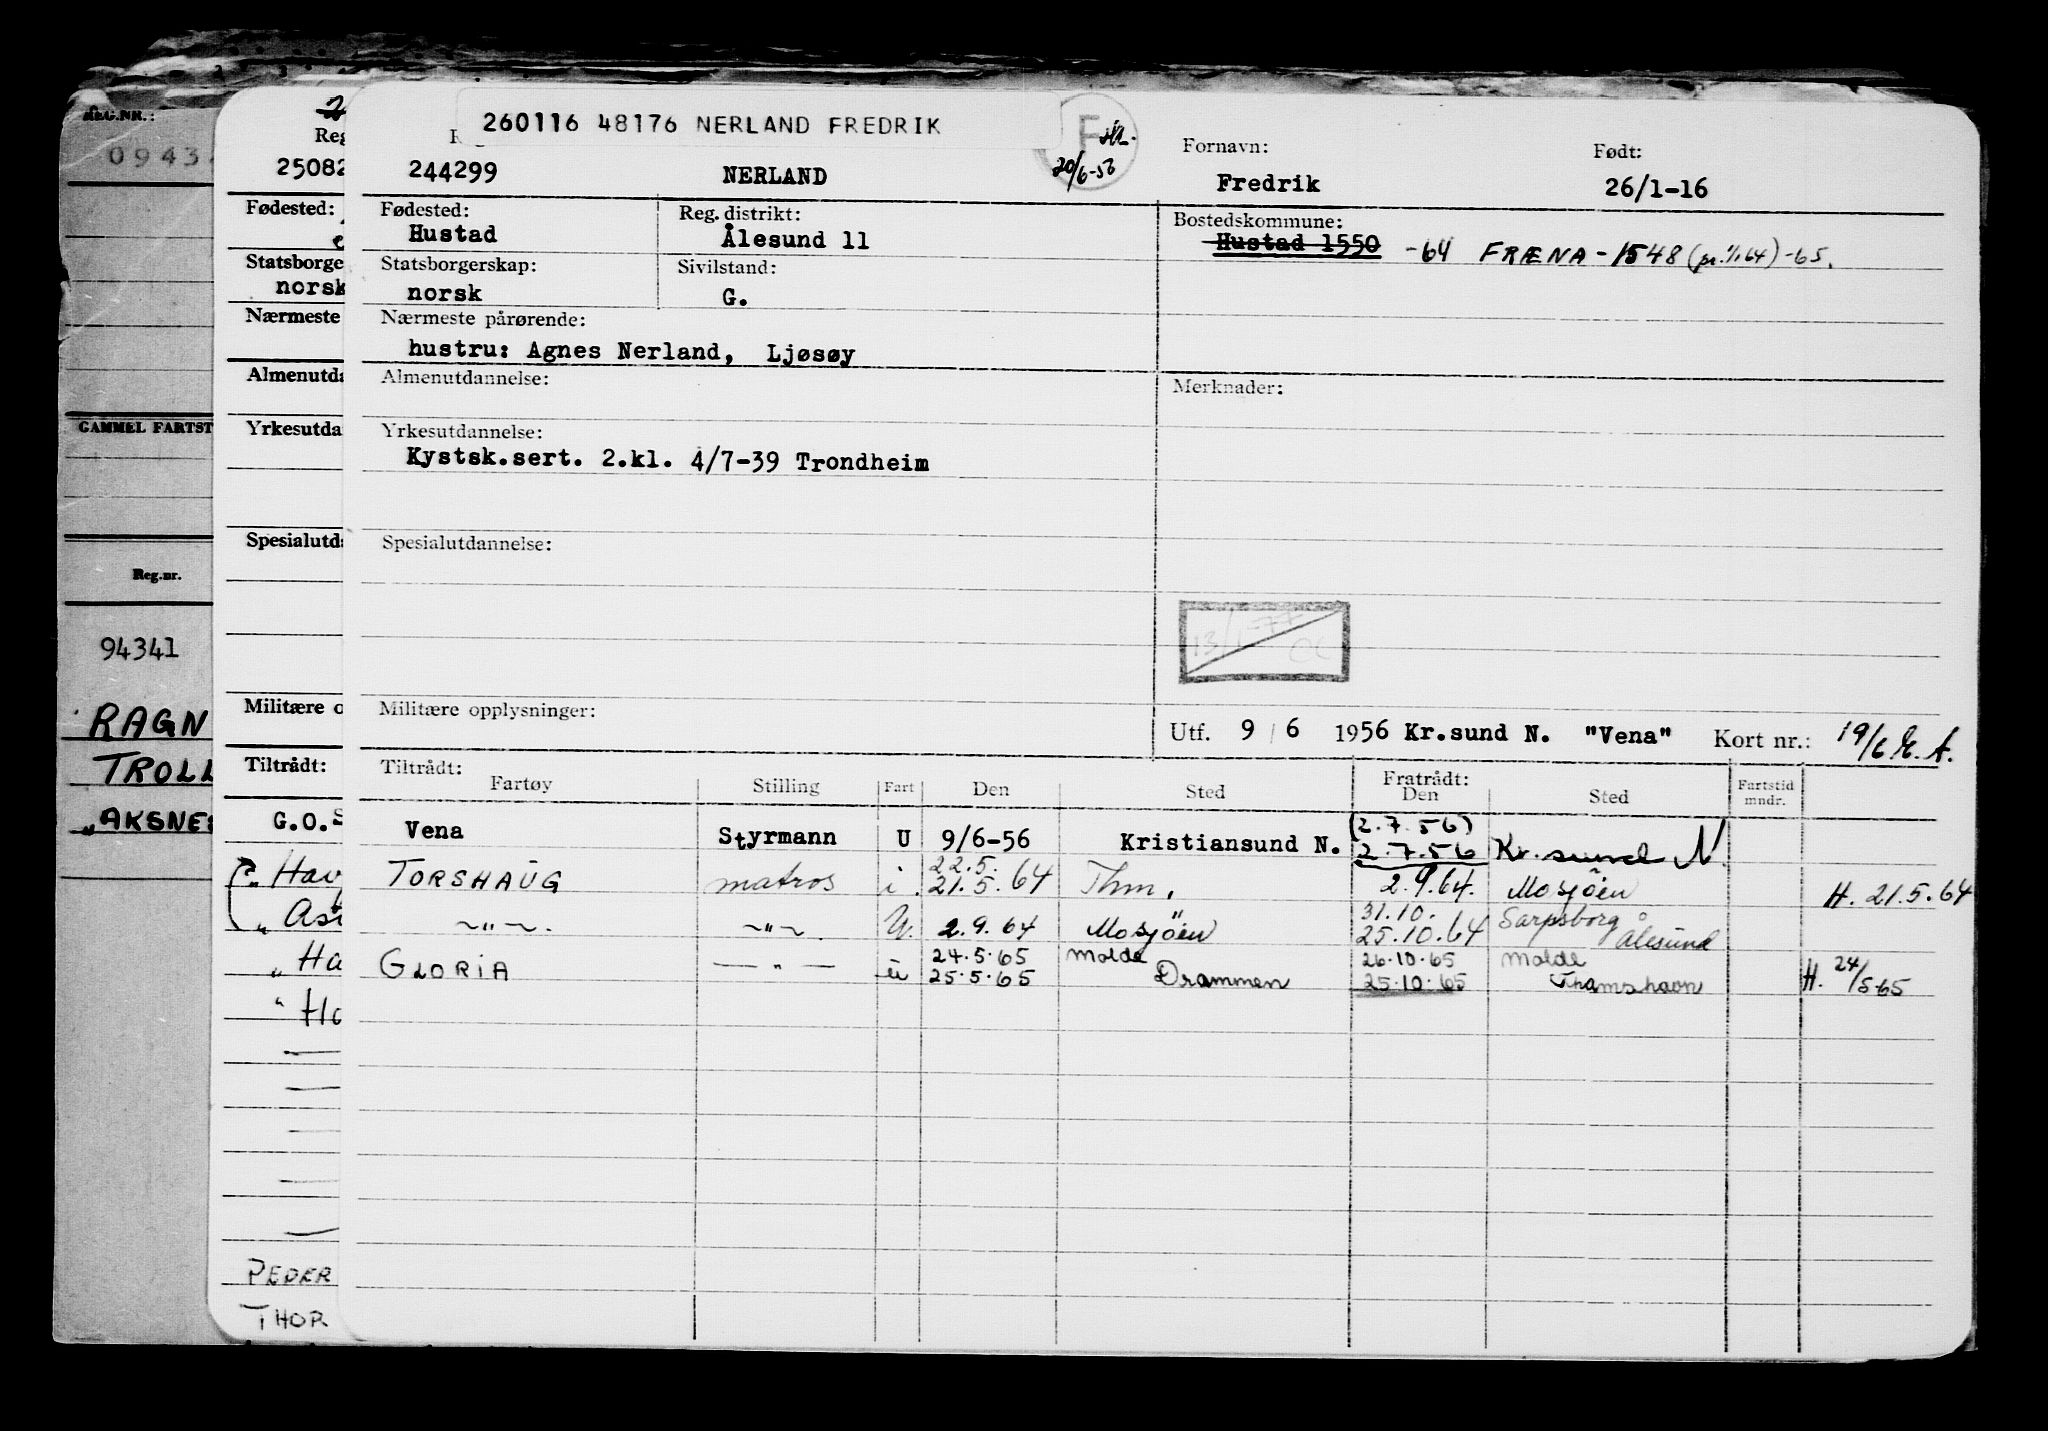 260116 48176 NERLAND FREDRIK
REG.NR.:
0943
Reg
25082
Fødested:
Statsborge
norsk
Nærmeste
Almenutda
GAMMEL FARTST
Yrkesutda
Spesialutda
Reg.nr.
94341
RAGN
TROLL
"AKSNES
Militære o
Tiltrådt:
G.O.S
" Hav
" Ast
" Ha
" Ha
PEDER
THOR
F
20/6-56
244299 NERLAND
Fornavn: Fredrik
Født: 26/1-16
Fødested: Hustad
Reg. distrikt: Ålesund 11
Bostedskommune:
Hustad 1550 -64 FRÆNA - 1548 (pr. 1/1 64) -65.
Statsborgerskap: norsk
Sivilstand: G.
Nærmeste pårørende:
hustru: Agnes Nerland, Ljøsøy
Almenutdannelse:
Merknader:
Yrkesutdannelse:
Kystsk.sert. 2.kl. 4/7-39 Trondheim
Spesialutdannelse:
13/1-77
OC
Militære opplysninger:
Utf. 9/6 1956 Kr.sund N. "Vena" Kort nr.: 19/6
Tiltrådt: Fratrådt:
Fartøy Stilling Fart Den Sted Den Sted Fartstid mndr.
(2.7.56)
Vena Styrmann U 9/6-56 Kristiansund N. 2.7.56 Kr.sund N.
22.5.
TORSHAUG matros i. 21.5.64 Thm. 2.9.64. Mosjöen H. 21.5.64
31.10. Sarpsborg
~"~. ~"~. U. 2.9.64 Mosjöen 25.10.64 Ålesund
24.5.65 Molde 26.10.65 Molde
GLORIA — " — u 25.5.65 Drammen 25.10.65 Thamshavn H. 24/5-65